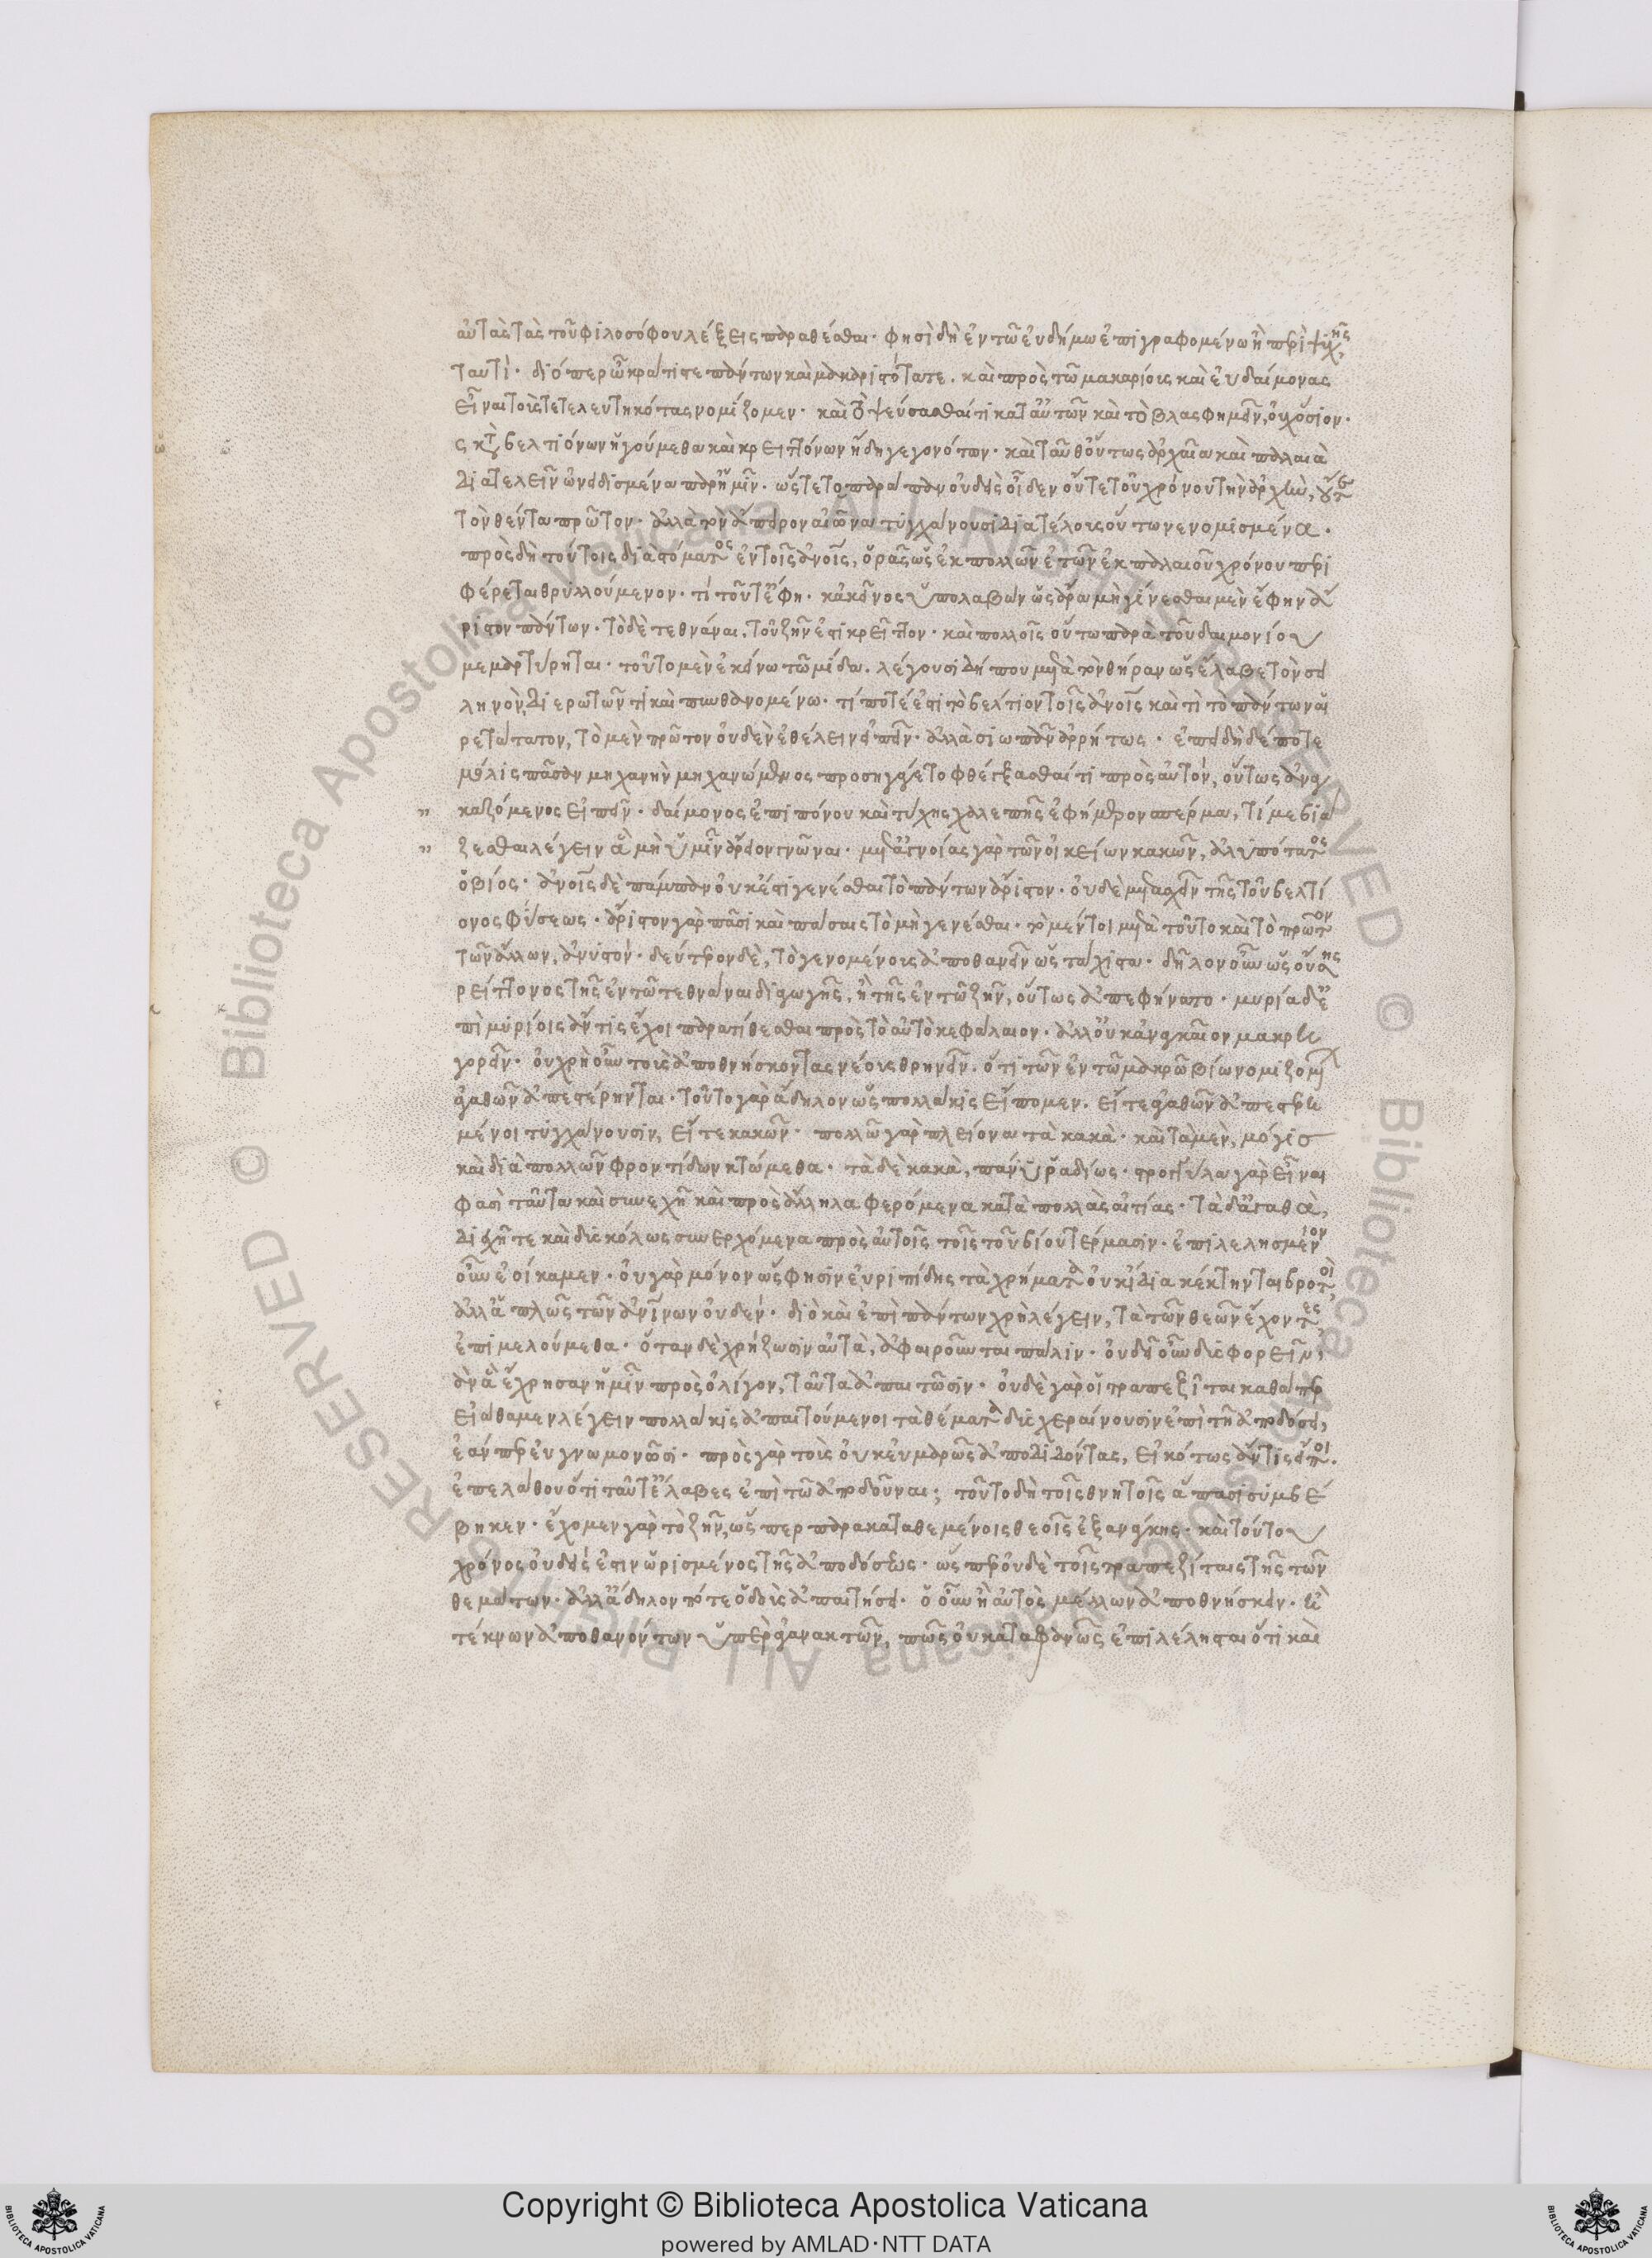 αὐτὰς τὰς τοῦ φιλοσόφου λέξεις παραθέσθαι· φησὶ δὴ ἐν τῶ εὐδήμω ἐπιγραφομένω ἢ περὶ ψυχῆς,
ταυτί· διόπερ ὦ κράτιστε πάντων καὶ μακαριστότατε. καὶ πρὸς τῶ μακαρίους καὶ εὐδαίμονας
εἶναι τοὺς τετελευτηκότας νομίζομεν· καὶ τὸ ψεύσασθαί τι κατ αὐτῶν καὶ τὸ βλασφημεῖν, οὐχ ὅσιον·
ὡς κατὰ βελτιόνων ἡγούμεθα καὶ κρειττόνων ἤδη γεγονότων· καὶ ταῦθ οὕτως ἀρχαῖα καὶ παλαιὰ
διατελεῖ νενομισμένα παρ ἡμῖν. ὥστε τοπαράπαν οὐδεὶς οἶδεν οὔτε τοῦ χρόνου τὴν ἀρχὴν, οὔτε
τὸν θέντα πρῶτον· ἀλλὰ τὸν ἄπειρον αἰῶνα τυγχάνουσι διὰ τέλους οὕτω νενομισμένα.
πρὸς δὴ τούτοις διὰ στόματος ἐν τοῖς ἀνοις, ὁρᾷς ὡς ἐκ πολλῶν ἐτῶν ἐκ παλαιοῦ χρόνου περι
φέρεται θρυλλούμενον· τί τοῦτ ἔφη· κἀκεῖνος ὑπολαβὼν ὡς ἄρα μὴ γίνεσθαι μὲν ἔφη ἄ
ριστον πάντων· τὸ δὲ τεθνάναι, τοῦ ζῆν ἐστὶ κρεῖττον· καὶ πολλοῖς οὕτω παρὰ τοῦ δαιμονίου
μεμαρτύρηται· τοῦτο μὲν ἐκείνω τῶ μίδα. λέγουσι δήπου μετὰ τὴν θήραν ὡς ἔλαβε τὸν σει
ληνὸν, διερωτῶντι καὶ πυνθανομένω· τί ποτέ ἐστι τὸ βέλτιον τοῖς ἀνοις καὶ τί τὸ πάντων αἱ
ρετώτατον, τὸ μὲν πρῶτον οὐδὲν ἐθέλειν εἰπεῖν· ἀλλὰ σιωπᾶν ἀρρήτως· ἐπειδὴ δέ ποτε
μόλις πᾶσαν μηχανὴν μηχανώμενος προσηγάγετο φθέγξασθαί τι πρὸς αὐτόν, οὕτως ἀναγ
καζόμενος εἰπεῖν· δαίμονος ἐπιπόνου καὶ τύχης χαλεπῆς ἐφήμερον σπέρμα, τί με βιά
ζεσθαι λέγειν ἃ μὴ ὑμῖν ἄρειον γνῶναι· μετ ἀγνοίας γὰρ τῶν οἰκείων κακῶν, ἀλυπότατος
ὁ βίος· ἀνοις δὲ πάμπαν οὐκ ἔστι γενέσθαι τὸ πάντων ἄριστον· οὐδὲ μετασχεῖν τῆς τοῦ βελτί
ονος φύσεως· ἄριστον γὰρ πᾶσι καὶ πάσαις τὸ μὴ γενέσθαι· τὸ μέντοι μετὰ τοῦτο καὶ τὸ πρῶτον
τῶν ἄλλων, ἀνυστόν· δεύτερον δὲ, τὸ γενομένους ἀποθανεῖν ὡς τάχιστα· δῆλον οὖν ὡς οὔσης
κρείττονος τῆς ἐν τῶ τεθνάναι διαγωγῆς, ἢ τῆς ἐν τῶ ζῆν, οὕτως ἀπεφήνατο· μυρία δε
πὶ μυρίοις ἄν τις ἔχοι παρατίθεσθαι πρὸς τὸ αὐτὸ κεφάλαιον· ἀλλ οὐκ ἀναγκαῖον μακρη
γορεῖν· οὐ χρὴ οὖν τοὺς ἀποθνήσκοντας νέους θρηνεῖν. ὅτι τῶν ἐν τῶ μακρῶ βίω νομιζομένων
ἀγαθῶν ἀπεστέρηνται· τοῦτο γὰρ ἄδηλον ὡς πολλάκις εἴπομεν. εἴτε ἀγαθῶν ἀπεστερη
μένοι τυγχάνουσιν, εἴτε κακῶν· πολλῶ γὰρ πλείονα τὰ κακὰ· καὶ τὰ μὲν, μόγις
καὶ διὰ πολλῶν φροντίδων κτώμεθα· τὰ δὲ κακὰ, πάνυ ῥαδίως· στρογγύλα γὰρ εἶναι
φασὶ ταῦτα καὶ συνεχῆ καὶ πρὸς ἄλληλα φερόμενα κατὰ πολλὰς αἰτίας· τὰ δ ἀγαθὰ,
διεχῆ τε καὶ δυσκόλως συνερχόμενα πρὸς αὐτοῖς τοῖς τοῦ βίου τέρμασιν· ἐπιλελησμένοις
οὖν ἐοίκαμεν· οὐ γὰρ μόνον ὥς φησιν εὐριπίδης τὰ χρήματα οὐκ ἴδια κέκτηνται βροτοί,
ἀλλ ἁπλῶς τῶν ἀνίνων οὐδέν· διὸ καὶ ἐπὶ πάντων χρὴ λέγειν, τὰ τῶν θεῶν ἔχοντες
ἐπιμελούμεθα· ὅταν δὲ χρήζωσιν αὐτὰ, ἀφαιροῦνται πάλιν· οὐ δεῖ οὖν δυσφορεῖν,
ἐὰν ἃ ἔχρησαν ἡμῖν πρὸς ὀλίγον, ταῦτα ἀπαιτῶσιν· οὐδὲ γὰρ οἱ τραπεζῖται καθάπερ
εἰώθαμεν λέγειν πολλάκις ἀπαιτούμενοι τὰ θέματα δυσχεραίνουσιν ἐπὶ τῆ ἀποδόσει,
ἐάν περ εὐγνωμονῶσι· πρὸς γὰρ τοὺς οὐκ εὐμαρῶς ἀποδιδόντας, εἰκότως ἄν τις εἴποι.
ἐπελάθου ὅτι ταῦτ ἔλαβες ἐπὶ τῶ ἀποδοῦναι; τοῦτο δὴ τοῖς θνητοῖς ἅπασι συμβέ
βηκεν· ἔχομεν γὰρ τὸ ζῆν, ὥσπερ παρακαταθεμένοις θεοῖς ἐξ ἀνάγκης· καὶ τούτου
χρόνος οὐδείς ἐστιν ὡρισμένος τῆς ἀποδόσεως· ὥσπερ οὐδὲ τοῖς τραπεζίταις τῆς τῶν
θεμάτων· ἀλλ ἄδηλον πότε ὁ δοὺς ἀπαιτήσει· ὁ οὖν ἢ αὐτὸς μέλλων ἀποθνήσκειν· ἢ
τέκνων ἀποθανόντων ὑπεραγανακτῶν, πῶς οὐ καταφανῶς ἐπιλέλησται ὅτι καὶ
Copyright © Biblioteca Apostolica Vaticana
powered by AMLAD·NTT DATA